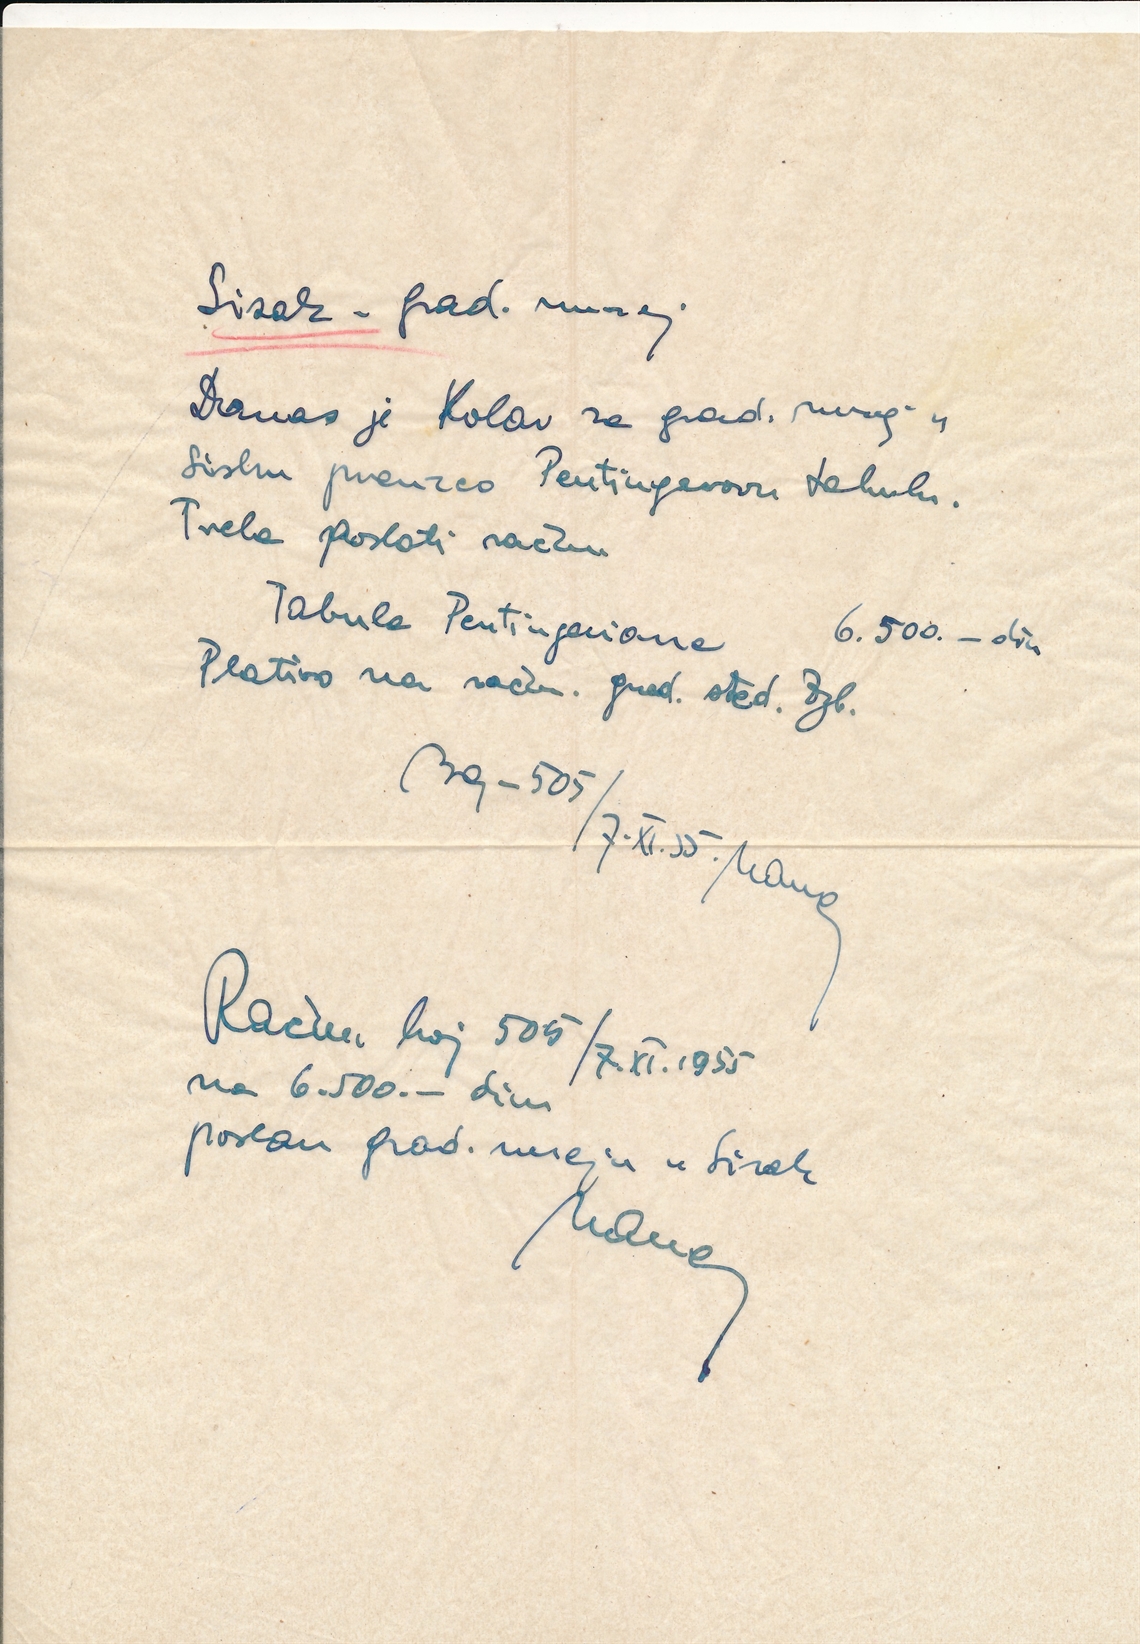 Sisak - grad. muzej
Danas je Kolar za grad. muzej u
Sisku preuzeo Pentingerovu tabulu.
Treba poslati račun
Tabula Pentingeriana 6.500.- din
Plativo na račun. grad. šted. Zgb.
505/7.XI.55.
Račun broj 505/7.XI.1955
na 6.500.- din
poslan grad. muzeju u Sisak